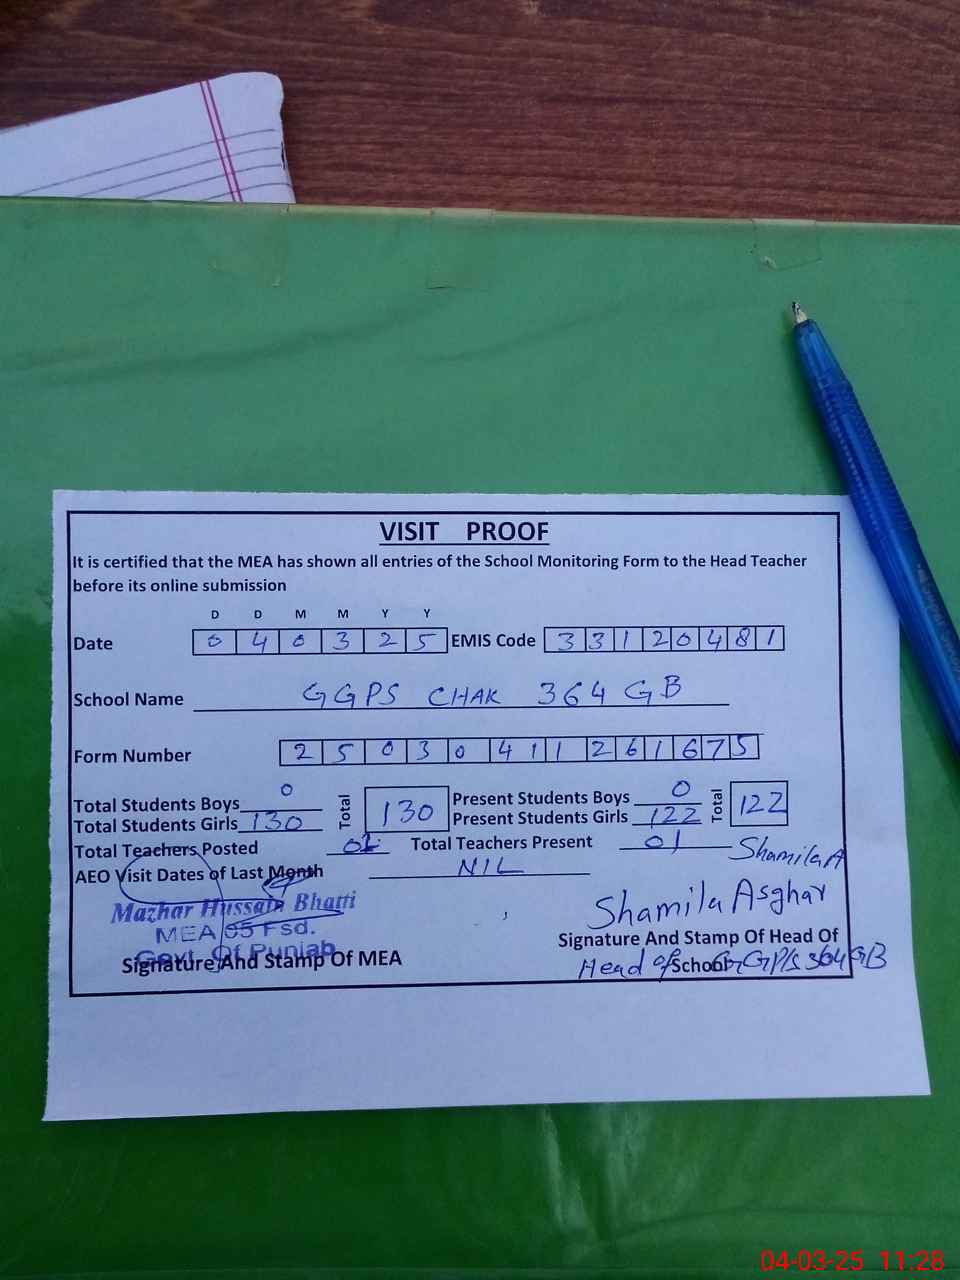 VISIT PROOF
It is certified that the MEA has shown all entries of the School Monitoring Form to the Head Teacher
before its online submission
D D M M Y Y
Date 0 4 0 3 2 5 EMIS Code 3 3 1 2 0 4 8 1
School Name GGPS CHAK 364 GB
Form Number 2 5 0 3 0 4 1 1 2 6 1 6 7 5
Total Students Boys 0 Total 130 Present Students Boys 0 Total 122
Total Students Girls 130 Present Students Girls 122
Total Teachers Posted Total Teachers Present 01
Shamila A
AEO Visit Dates of Last Month NIL
Mazhar Hussain Bhatti
Shamila Asghar
MEA 05 Fsd.
Govt. Of Punjab
Signature And Stamp Of MEA
Signature And Stamp Of Head Of
School
Head of GGPS 364 GB
04-03-25 11:28